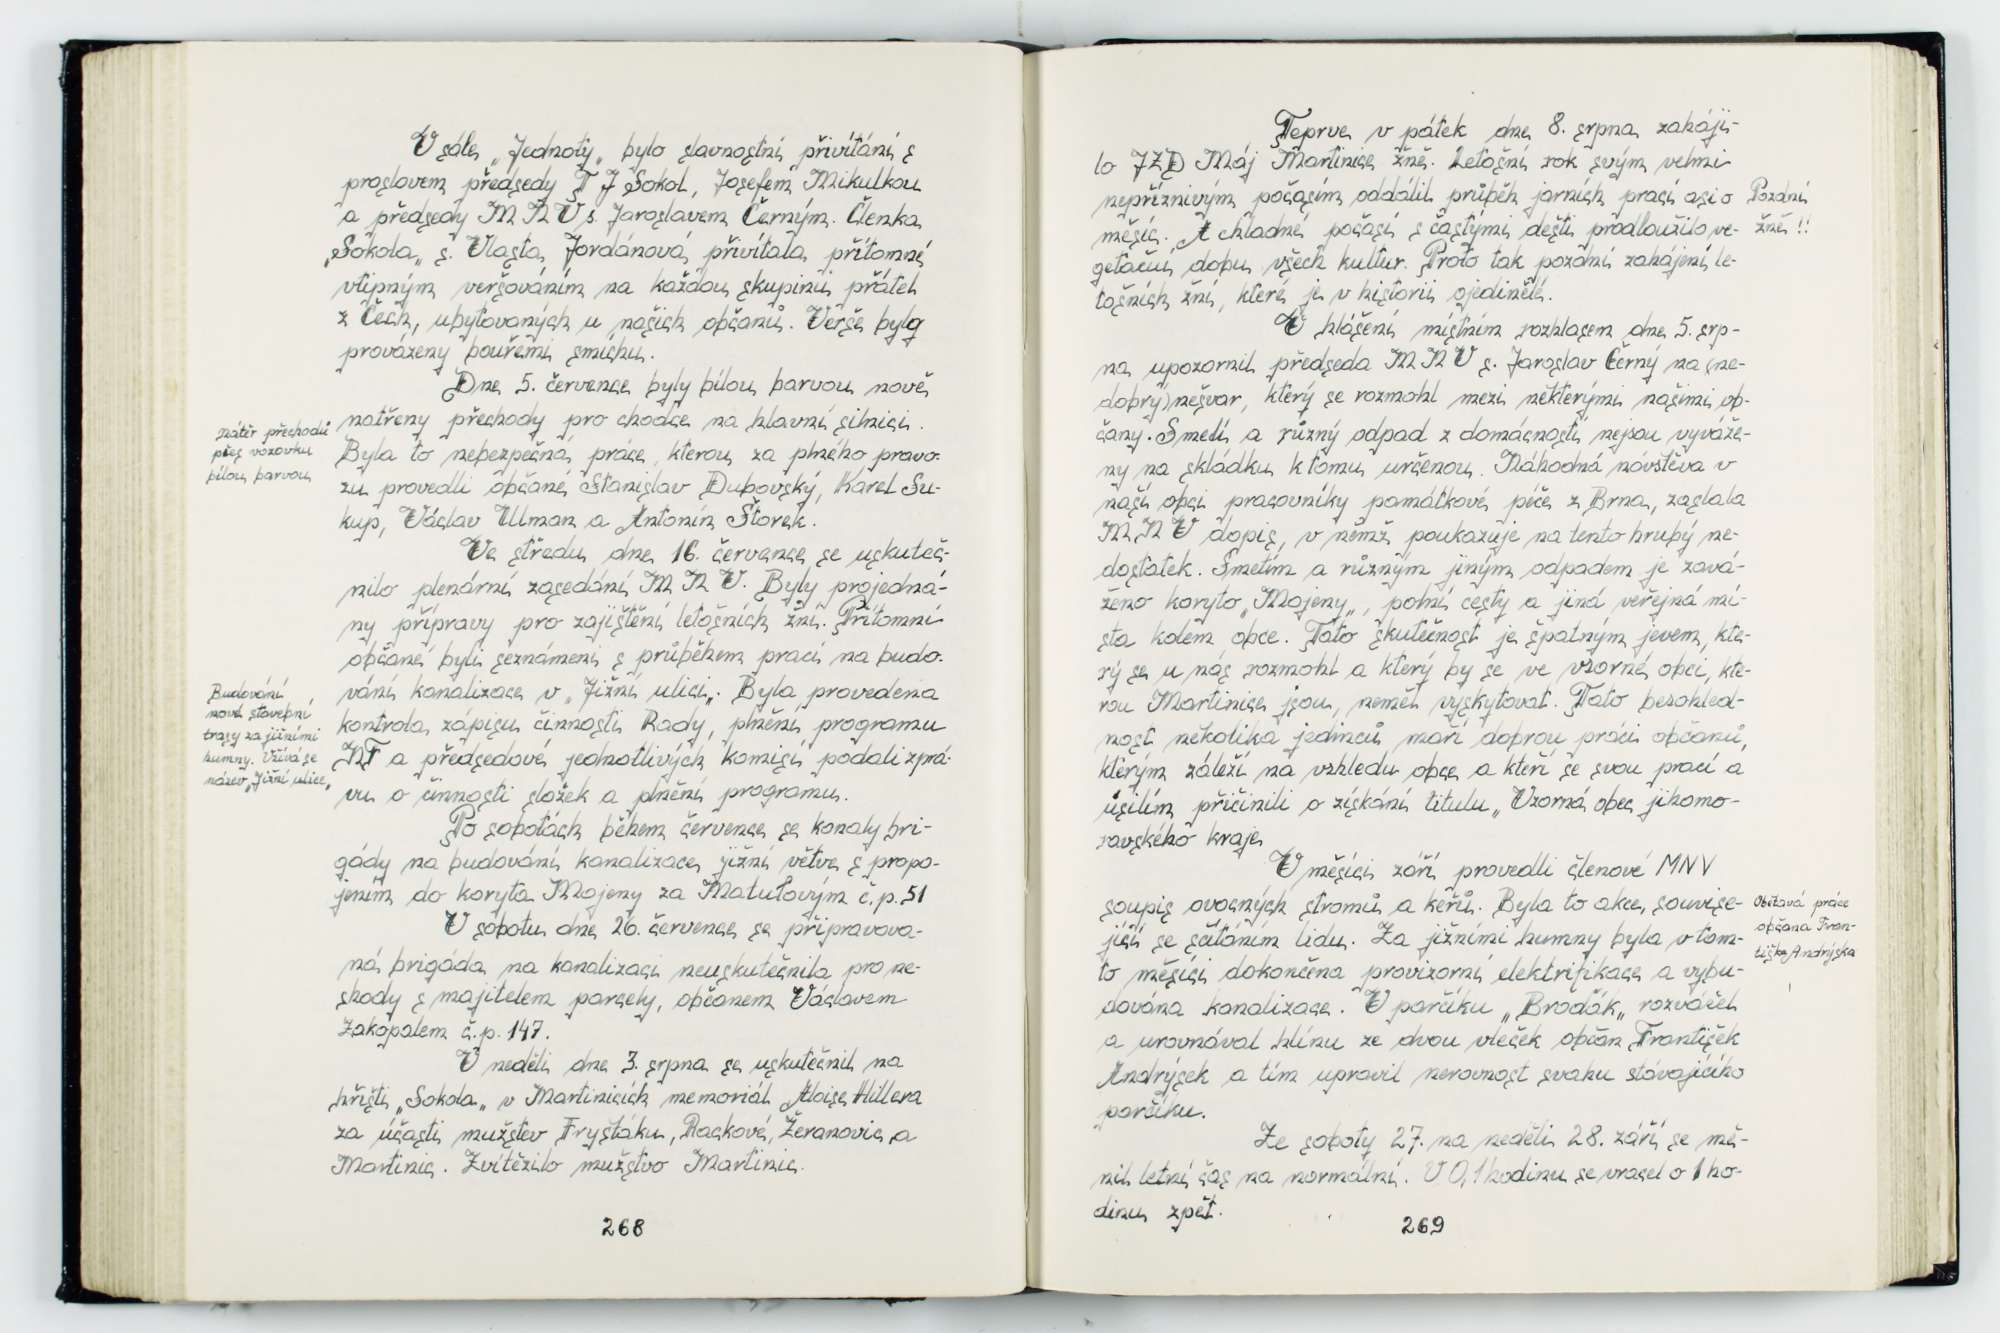 V sále „Jednoty„ bylo slavnostní přivítání s
proslovem předsedy T J Sokol, Josefem Mikulkou
a předsedy M N V s. Jaroslavem Černým. Členka
„Sokola„ s. Vlasta Jordánová přivítala přítomné
vtipným veršováním na každou skupinu přátel
z Čech, ubytovaných u našich občanů. Verše byly
provázeny bouřemi smíchu.
Dne 5. července byly bílou barvou nově
natřeny přechody pro chodce na hlavní silnici.
Byla to nebezpečná práce, kterou za plného provo-
zu provedli občané Stanislav Dubovský, Karel Su-
kup, Václav Ullman a Antonín Štorek.
Ve středu dne 16. července se uskuteč-
nilo plenární zasedání M N V. Byly projedná-
ny přípravy pro zajištění letošních žní. Přítomní
občané byli seznámeni s průběhem prací na budo-
vání kanalizace v „Jižní ulici„. Byla provedena
kontrola zápisu činnosti Rady, plnění programu
NF a předsedové jednotlivých komisí podali zprá-
vu o činnosti složek a plnění programu.
Po sobotách během července se konaly bri-
gády na budování kanalizace jižní větve s propo-
jením do koryta Mojeny za Matulovým č.p. 51
V sobotu dne 26. července se připravova-
ná brigáda na kanalizaci neuskutečnila pro ne-
shody s majitelem parcely, občanem Václavem
Zakopalem č.p. 147.
V neděli dne 3. srpna se uskutečnil na
hřišti „Sokola„ v Martinicích memoriál Aloise Hillera
za účasti mužstev Fryštáku, Rackové, Žeranovic a
Martinic. Zvítězilo mužstvo Martinic.
Nátěr přechodů
přes vozovku
bílou barvou
Budování
nové stavební
trasy za jižními
humny. Užívá se
název „Jižní ulice„
268
Teprve v pátek dne 8. srpna zaháji-
lo JZD Máj Martinice žně. Letošní rok svým velmi
nepříznivým počasím oddálil průběh jarních prací asi o
měsíc. A chladné počasí s častými dešti prodloužilo ve-
getační dobu všech kultur. Proto tak pozdní zahájení le-
tošních žní, které je v historii ojedinělé.
V hlášení místním rozhlasem dne 5. srp-
na upozornil předseda M N V s. Jaroslav Černý na (ne-
dobrý) nešvar, který se rozmohl mezi některými našimi ob-
čany. Smetí a různý odpad z domácností nejsou vyváže-
ny na skládku k tomu určenou. Náhodná návštěva v
naší obci pracovníky památkové péče z Brna, zaslala
M N V dopis, v němž poukazuje na tento hrubý ne-
dostatek. Smetím a různým jiným odpadem je zavá-
ženo koryto „Mojeny„, polní cesty a jiná veřejná mí-
sta kolem obce. Tato skutečnost je špatným jevem, kte-
rý se u nás rozmohl a který by se ve vzorné obci, kte-
rou Martinice jsou, neměl vyskytovat. Tato bezohled-
nost několika jedinců, maří dobrou práci občanů,
kterým záleží na vzhledu obce a kteří se svou prací a
úsilím přičinili o získání titulu „Vzorná obec jihomo-
ravského kraje
V měsíci září provedli členové MNV
soupis ovocných stromů a keřů. Byla to akce, souvise-
jící se sčítáním lidu. Za jižními humny byla v tom-
to měsíci dokončena provizorní elektrifikace a vybu-
dována kanalizace. V parčíku „Brodák„ rozvážel
a urovnával hlínu ze dvou vleček občan František
Andrýsek a tím upravil nerovnost svahu stávajícího
parčíku.
Ze soboty 27. na neděli 28. září se mě-
nil letní čas na normální. V 0,1 hodinu se vracel o 1 ho-
dinu zpět.
Pozdní
žně !!
Obětavá práce
občana Fran-
tiška Andrýska
269